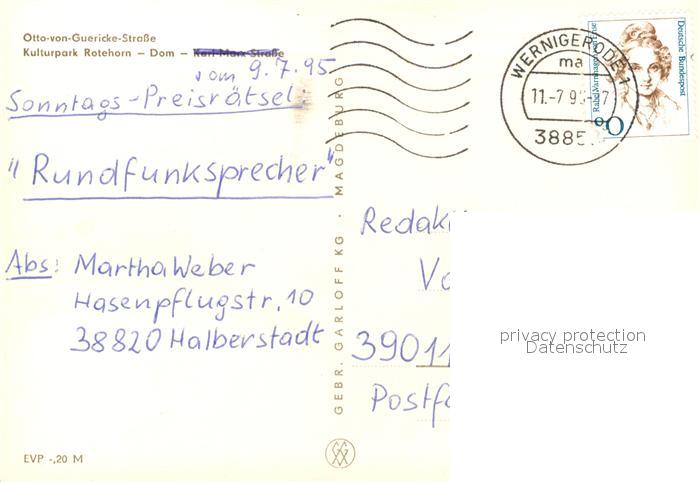 Otto-von-Guericke-Straße
Kulturpark Rotehorn – Dom – Karl-Marx-Straße
vom 9.7.95
Sonntags-Preisrätsel:
"Rundfunksprecher"
Abs: Martha Weber
Hasenpflugstr. 10
38820 Halberstadt
EVP -,20 M
GEBR. GARLOFF KG · MAGDEBURG
WERNIGERODE 1
ma
11.-7.95-17
3885
Deutsche Bundespost
Rahel Varnhagen
80
Redak
Vo
39011
Postf
privacy protection
Datenschutz